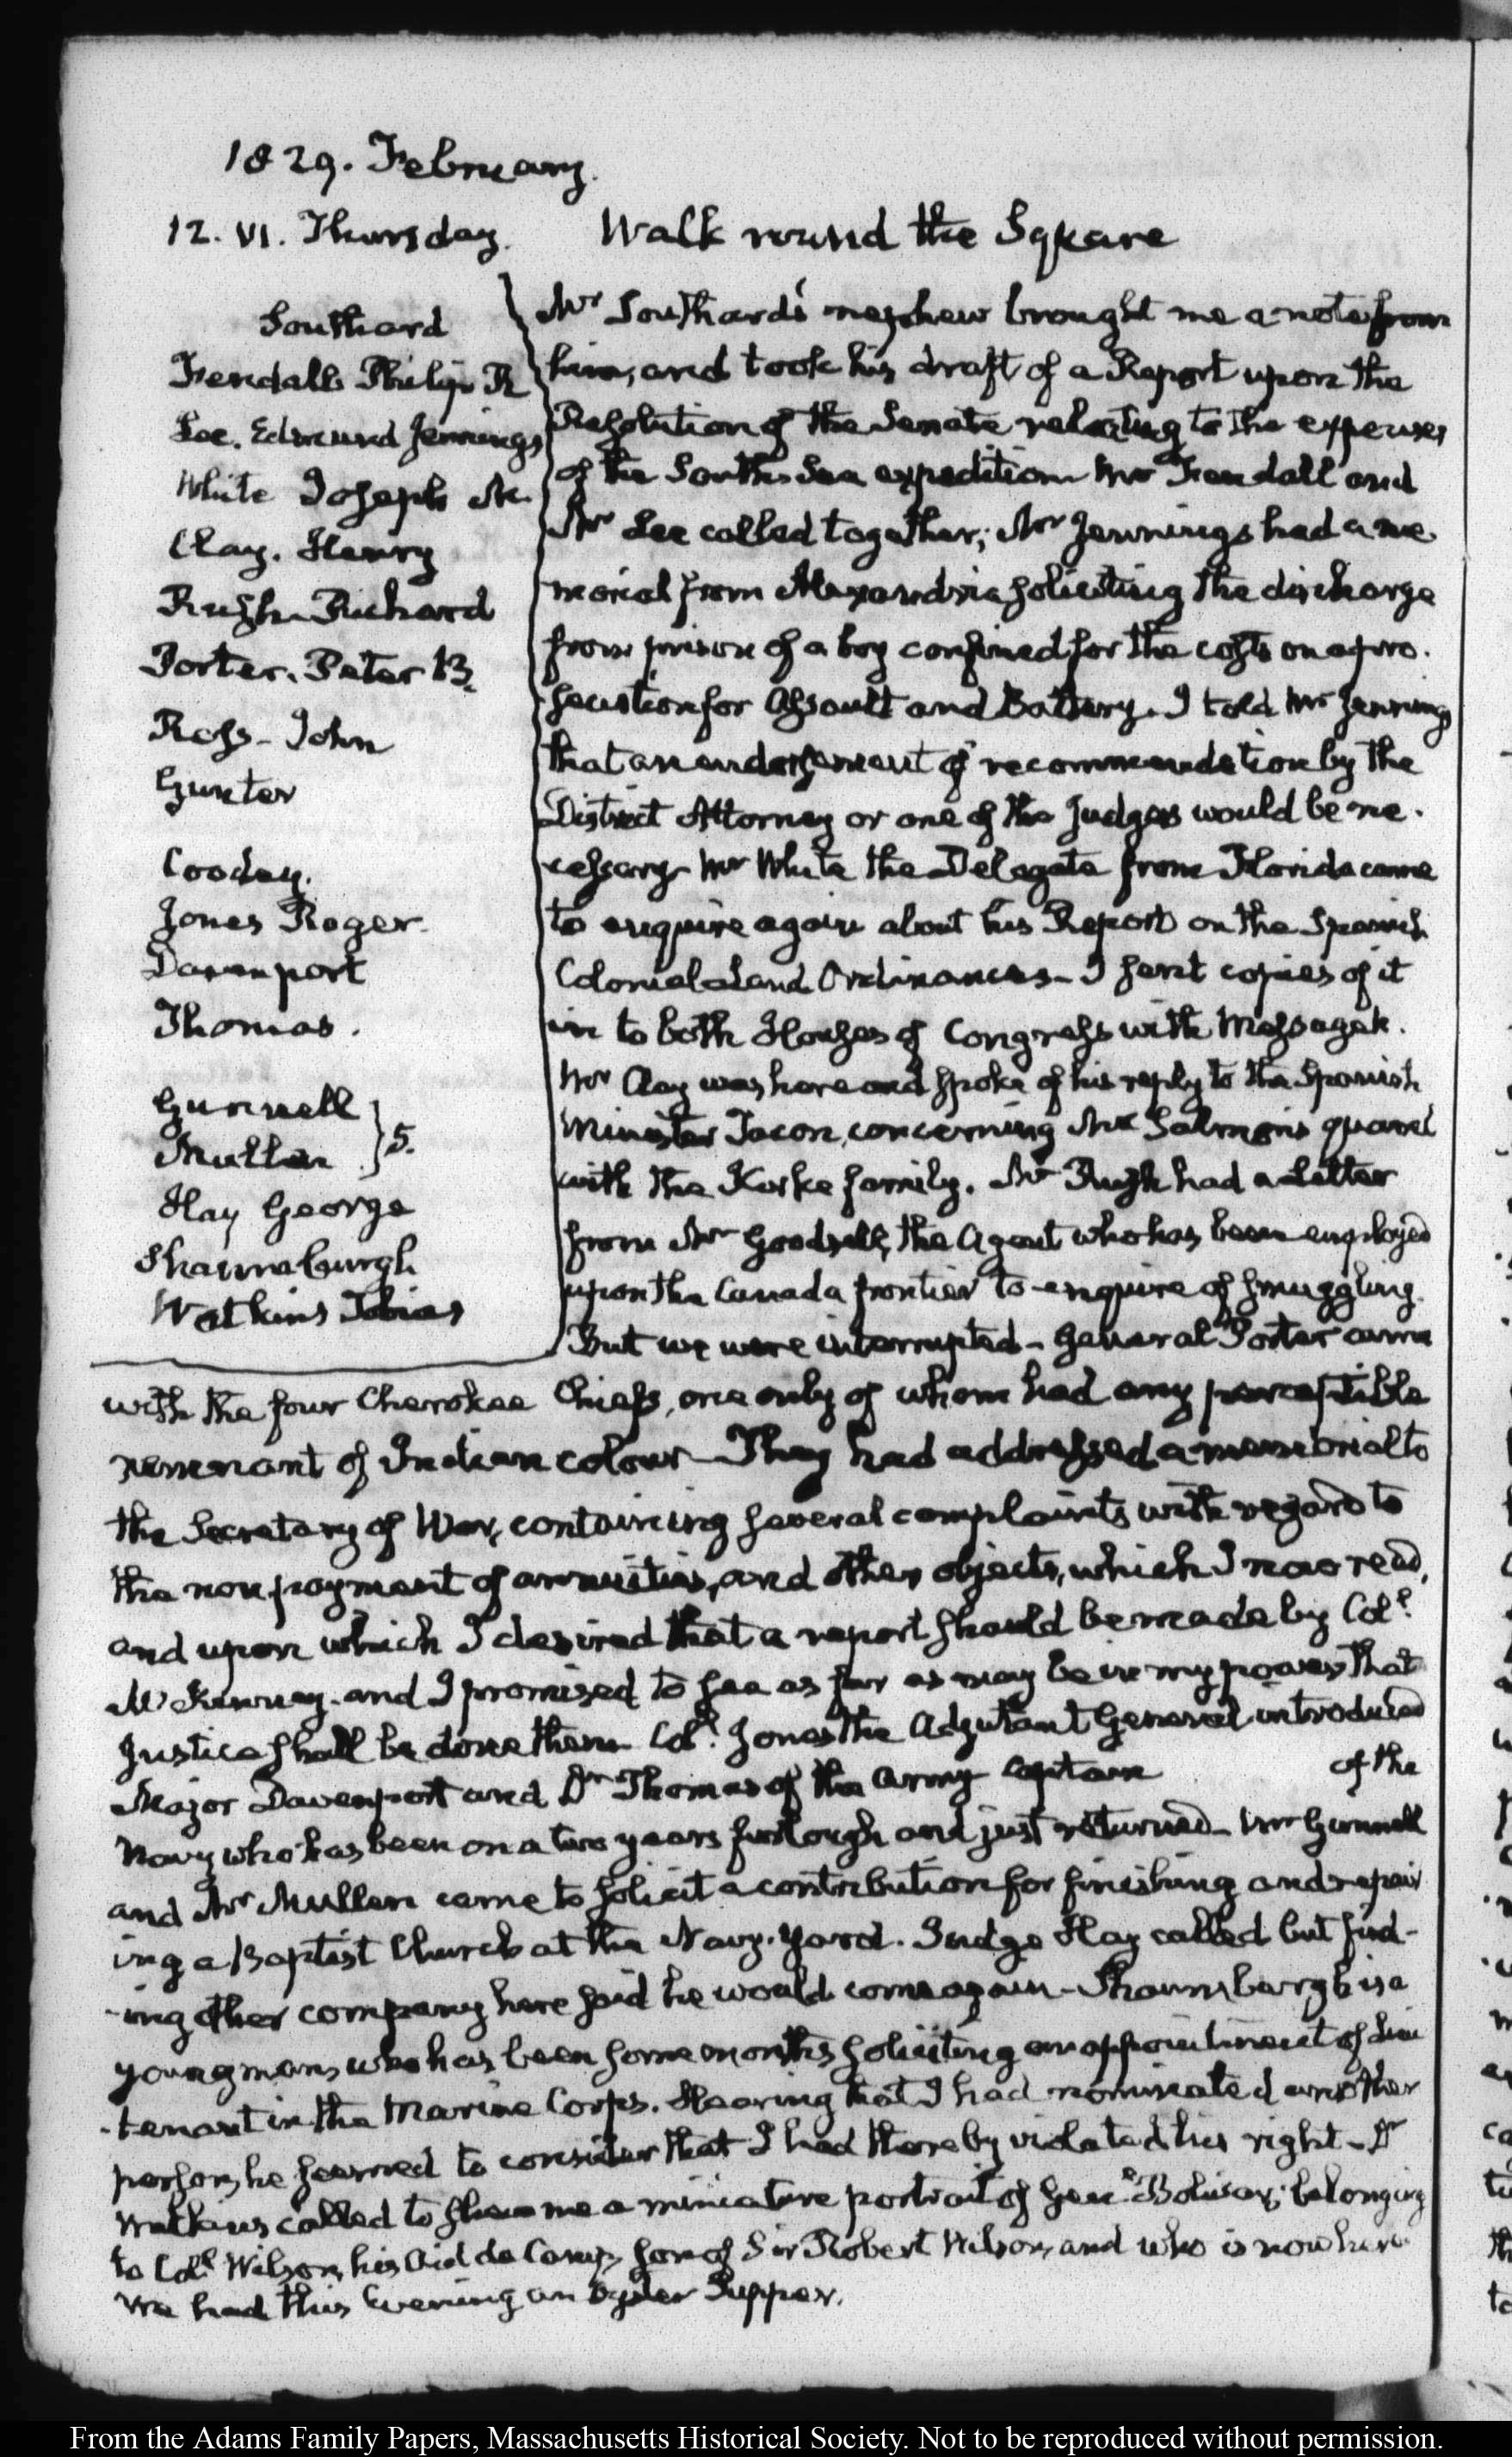 1829. February.
12. VI. Thursday. Walk round the Square
Southard
Fendall Philip R
Lee. Edmund Jennings
White Joseph M.
Clay. Henry
Rush. Richard
Porter. Peter B.
Ross. John
Gunter
Coodey.
Jones Roger.
Davenport
Thomas.
Gunnell
Mullen } 5.
Hay George
Shaumburgh
Watkins Tobias
Mr Southard's nephew brought me a note from
him, and took his draft of a Report upon the
Resolution of the Senate relating to the expenses
of the South-Sea expedition Mr Fendall and
Mr Lee called together; Mr Jennings had a me-
morial from Alexandria soliciting the discharge
from prison of a boy confined for the costs on a pro-
secution for Assault and Battery. I told Mr Jennings
that an endorsement of recommendation by the
District Attorney or one of the Judges would be ne-
cessary- Mr White the Delegate from Florida came
to enquire again about his Report on the Spanish
Colonial Land Ordinances- I sent copies of it
in to both Houses of Congress with Messages.
Mr Clay was here and spoke of his reply to the Spanish
Minister Tacon, concerning Mr Salmon's quarrel
with the family. Mr Rush had a Letter
from Mr Goodsell, the Agent who has been employed
upon the Canada frontier to enquire of smuggling
But we were interrupted- General Porter came
with the four Cherokee Chiefs, one only of whom had any perceptible
remnant of Indian colour- They had addressed a memorial to
the Secretary of War, containing several complaints with regard to
the non payment of annuities, and other objects, which I now read,
and upon which I desired that a report should be made by Coll.
McKenney- and I promised to see as far as may be in my power that
Justice shall be done them- Coll. Jones the Adjutant General introduced
Major Davenport and Dr Thomas of the Army Captain of the
Navy who has been on a two years furlough and just returned- Mr Gunnell
and Mr Mullen came to solicit a contribution for finishing and repair
ing a Baptist Church at the Navy-Yard. Judge Hay called but find-
-ing other company here said he would come again- Shaumburgh is a
young man, who has been some months soliciting an appointment of Lieu
-tenant in the Marine Corps. Hearing that I had nominated another
person, he seemed to consider that I had thereby violated his right- Dr
Watkins called to shew me a miniature portrait of Genl. Bolivar; belonging
to Coll. Wilson, his Aid de Camp, son of Sir Robert Wilson, and who is now here
We had this Evening an Oyster Supper.
From the Adams Family Papers, Massachusetts Historical Society. Not to be reproduced without permission.